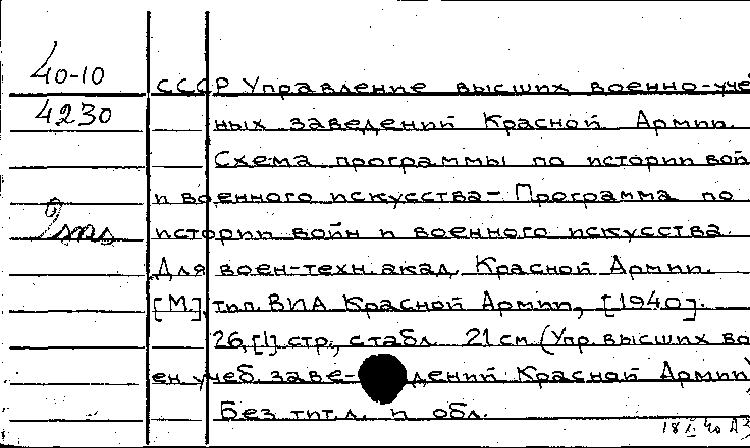 40-10
4230
СССР Управление высших военно-уче
ных заведений Красной Армии.
Схема программы по истории вой
и военного искусства - Программа по
истории войн и военного искусства.
Для воен-техн. акад. Красной Армии.
[М.], тип. ВИА Красной Армии, [1940].
26, [1] стр., с табл. 21 см. (Упр. высших во
ен. учеб. заве- дений Красной Армии)
Без тит. л. и обл.